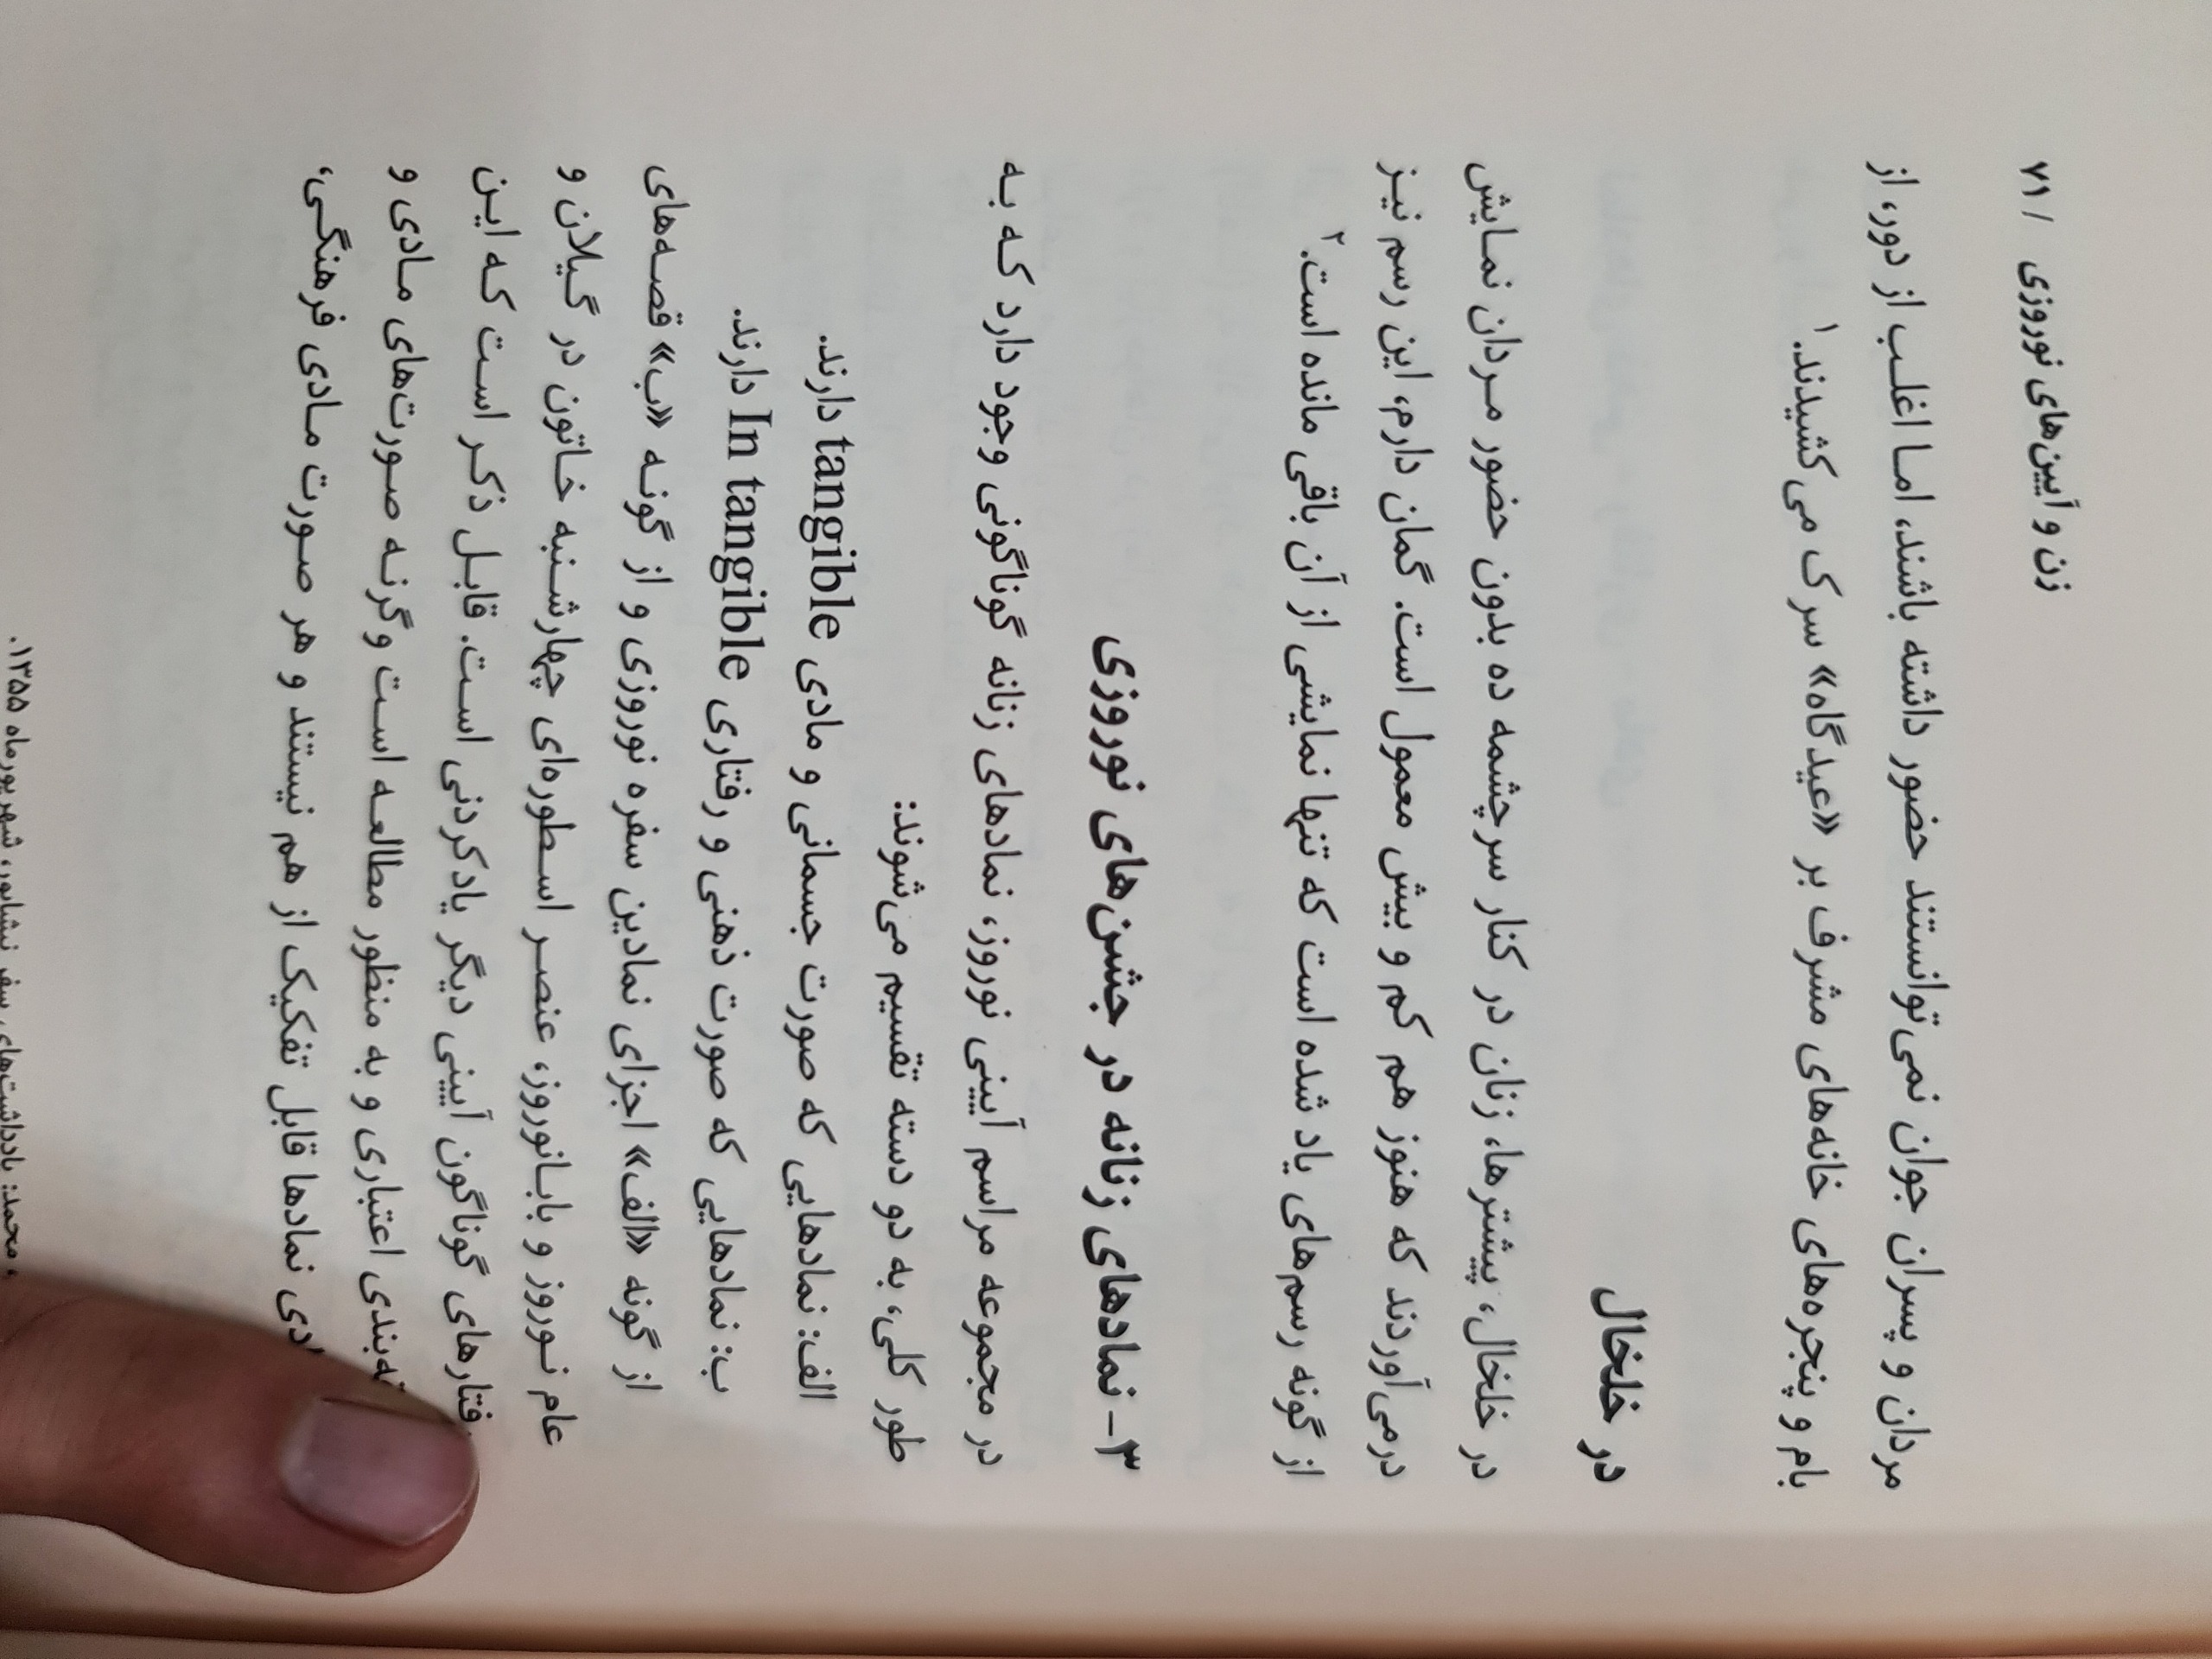 زن و آیین‌های نوروزی / ۷۱
مردان و پسران جوان نمی‌توانستند حضور داشته باشند، اما اغلب از دور، از
بام و پنجره‌های خانه‌های مشرف بر «عیدگاه» سرک می‌کشیدند.۱
در خلخال
در خلخال، پیشترها، زنان در کنار سرچشمه ده بدون حضور مردان نمایش
درمی‌آوردند که هنوز هم کم و بیش معمول است. گمان دارم، این رسم نیز
از گونه رسم‌های یاد شده است که تنها نمایشی از آن باقی مانده است.۲
۳- نمادهای زنانه در جشن‌های نوروزی
در مجموعه مراسم آیینی نوروز، نمادهای زنانه گوناگونی وجود دارد که به
طور کلی، به دو دسته تقسیم می‌شوند:
الف: نمادهایی که صورت جسمانی و مادی tangible دارند.
ب: نمادهایی که صورت ذهنی و رفتاری In tangible دارند.
از گونه «الف» اجزای نمادین سفره نوروزی و از گونه «ب» قصه‌های
عام نوروز و بابانوروز، عنصر اسطوره‌ای چهارشنبه خاتون در گیلان و
گوناگون آیینی دیگر یادکردنی است. قابل ذکر است که این
اعتباری و به منظور مطالعه است وگرنه صورت‌های مادی و
نمادها قابل تفکیک از هم نیستند و هر صورت مادی فرهنگی،
محمد: یادداشت‌های سفر نیشابور، شهریورماه ۱۳۵۵.